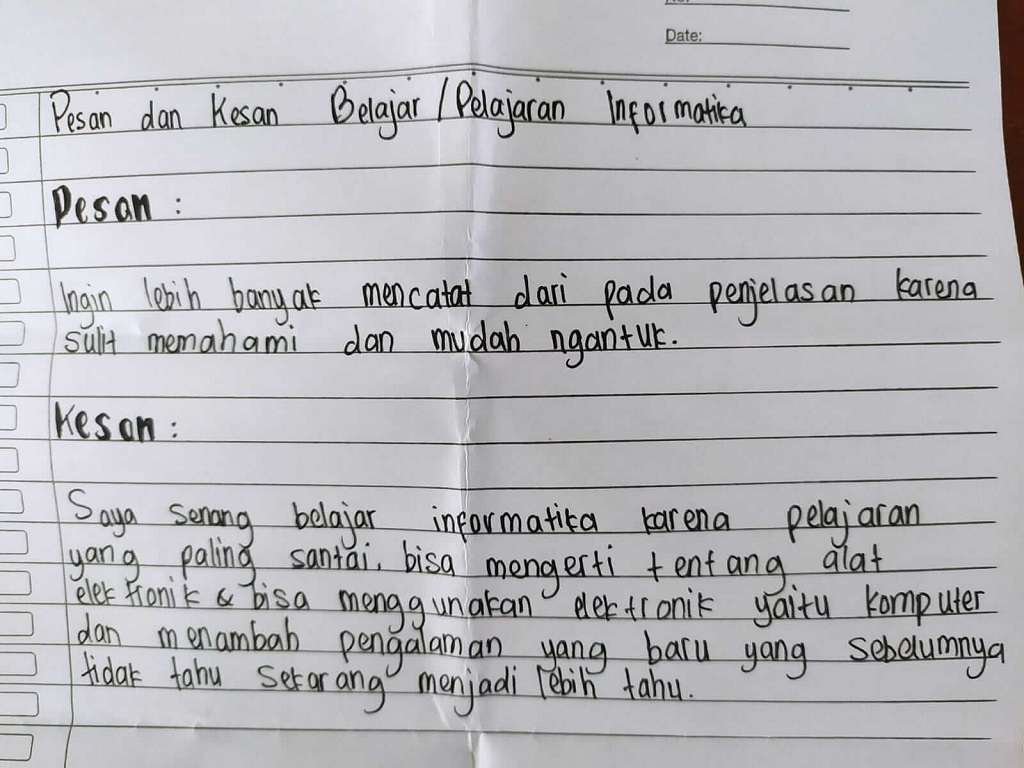 Date:
Pesan dan Kesan Belajar / Pelajaran Informatika
Pesan :
Ingin lebih banyak mencatat dari pada penjelasan karena
sulit memahami dan mudah ngantuk.
Kesan :
Saya senang belajar informatika karena pelajaran
yang paling santai, bisa mengerti tentang alat
elektronik & bisa menggunakan elektronik yaitu komputer
dan menambah pengalaman yang baru yang sebelumnya
tidak tahu sekarang menjadi lebih tahu.